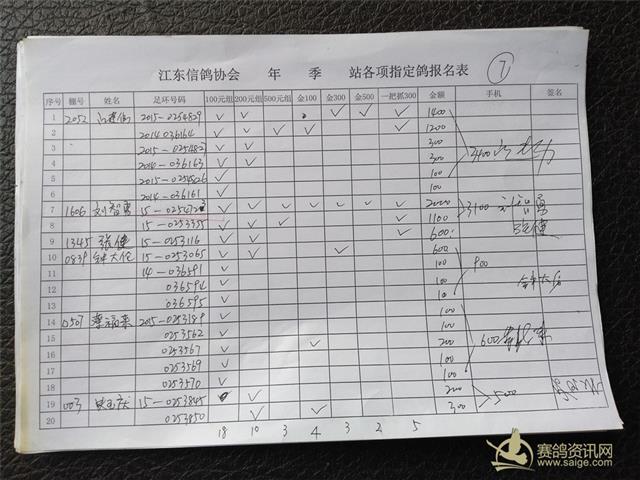 江东信鸽协会 年 季 站各项指定鸽报名表 7
序号 棚号 姓名 足环号码 100元组 200元组 500元组 金100 金300 金500 一把抓300 金额 手机 签名
1 2052 2015-0254829 ✓ ✓ ✓ ✓ ✓ 1400
2 2014-036164 ✓ ✓ ✓ ✓ 1200
3 ✓ ✓ 300
4 2014-036163 ✓ ✓ 300 3400
5 2015-0254826 ✓ 100
6 2014-036161 ✓ 100
7 1606 刘智勇 ✓ ✓ ✓ ✓ ✓ ✓ ✓ 2000 3100 刘智勇
8 15-0253355 ✓ ✓ ✓ ✓ 1100
9 1345 张健 15-0253116 ✓ ✓ ✓ 600 张健
10 0839 钟大伦 15-0253065 ✓ ✓ ✓ 600
11 14-036591 ✓ 100 900
12 036594 ✓ 100
13 036595 ✓ 100
14 0507 2015-0253189 ✓ 100
15 0253562 ✓ 100
16 0253567 ✓ ✓ 200 600
17 0253569 ✓ 100
18 0253570 ✓ 100
19 003 15-0253845 ✓ ✓ 200 500
20 0253850 ✓ ✓ 300
18 10 3 4 3 2 5
赛鸽资讯网
www.saige.com